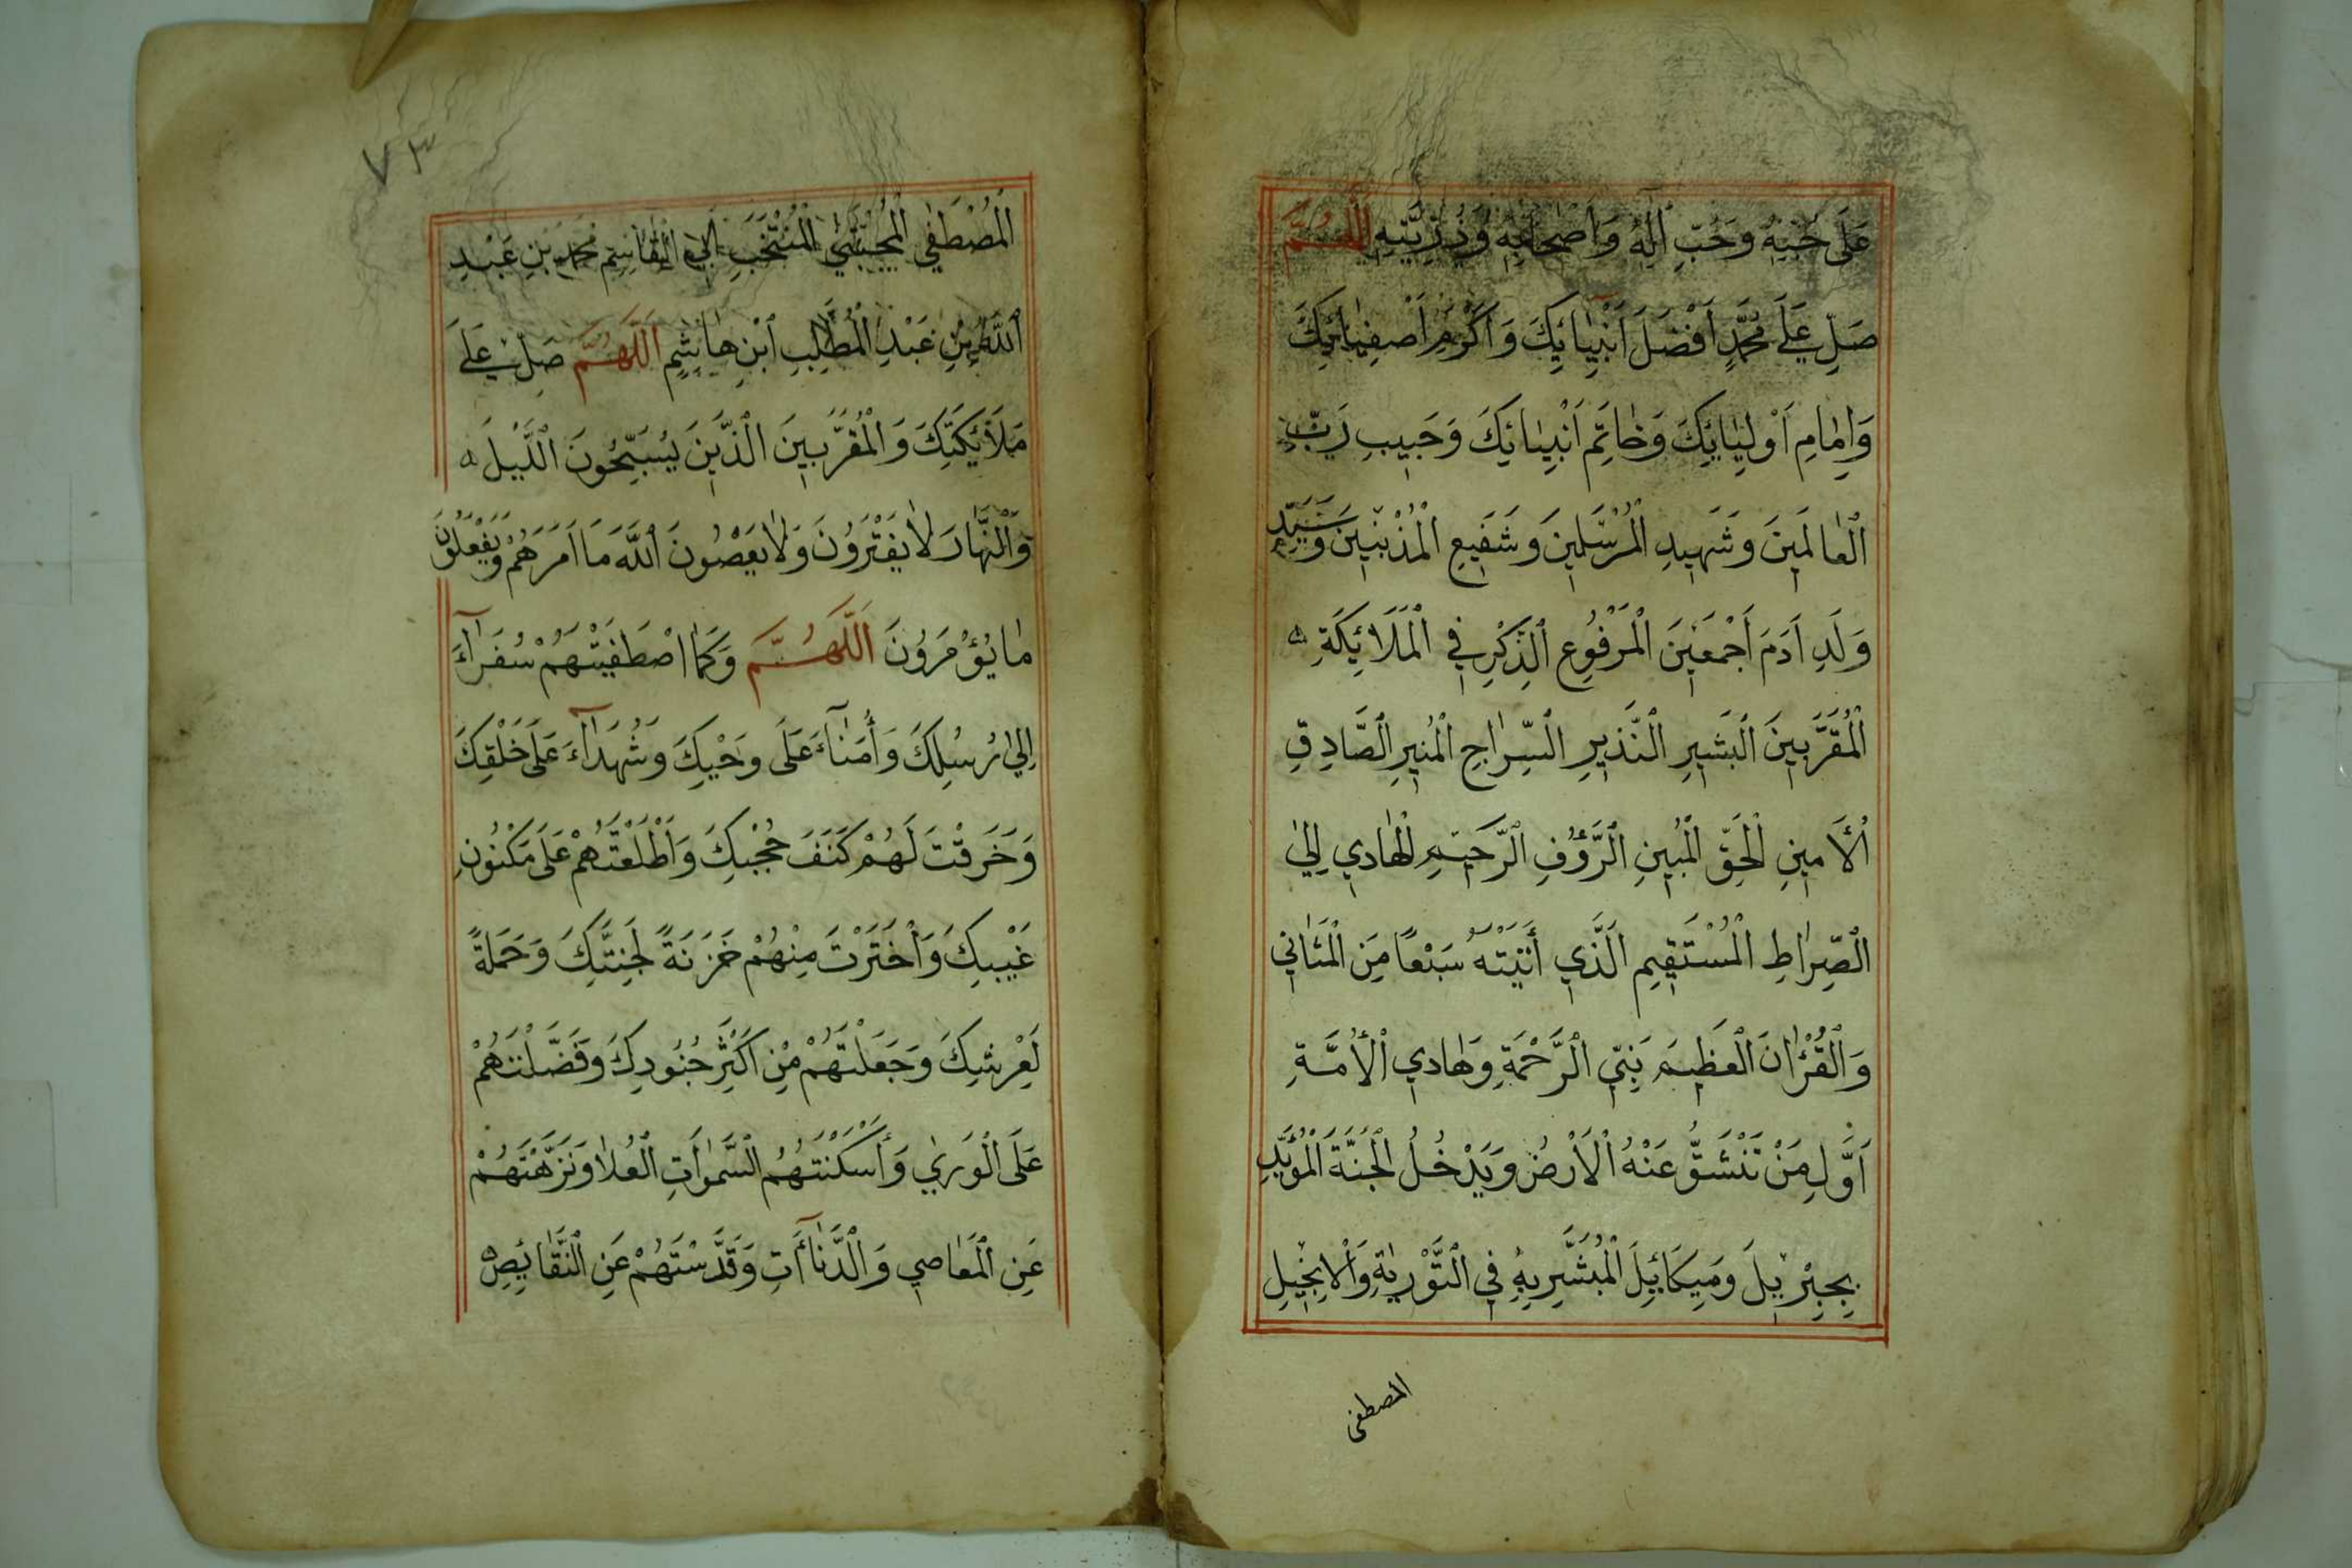 عَلَى حُبِّهِ وَحُبِّ اٰلِهِ وَاَصْحَابِهِ وَذُرِّيَّتِهِ اَللّٰهُمَّ
صَلِّ عَلَى مُحَمَّدٍ اَفْضَلِ اَنْبِيَائِكَ وَاَكْرَمِ اَصْفِيَائِكَ
وَاِمَامِ اَوْلِيَائِكَ وَخَاتَمِ اَنْبِيَائِكَ وَحَبِيبِ رَبِّ
الْعَالَمِينَ وَشَهِيدِ الْمُرْسَلِينَ وَشَفِيعِ الْمُذْنِبِينَ وَسَيِّدِ
وَلَدِ اٰدَمَ اَجْمَعِينَ الْمَرْفُوعِ الذِّكْرِ فِي الْمَلَائِكَةِ
الْمُقَرَّبِينَ الْبَشِيرِ النَّذِيرِ السِّرَاجِ الْمُنِيرِ الصَّادِقِ
الْأَمِينِ الْحَقِّ الْمُبِينِ الرَّؤُفِ الرَّحِيمِ الْهَادِي اِلَى
الصِّرَاطِ الْمُسْتَقِيمِ الَّذِي أَتَيْتَهُ سَبْعًا مِنَ الْمَثَانِي
وَالْقُرْاٰنَ الْعَظِيمَ نَبِيِّ الرَّحْمَةِ وَهَادِي الْأُمَّةِ
اَوَّلِ مَنْ تَنْشَقُّ عَنْهُ الْاَرْضُ وَيَدْخُلُ الْجَنَّةَ الْمُؤَيَّدِ
بِجِبْرِيلَ وَمِيكَائِيلَ الْمُبَشَّرِ بِهِ فِي التَّوْرٰيةِ وَالْاِنْجِيلِ
المصطفى
٧٣
الْمُصْطَفَى الْمُجْتَبَى الْمُنْتَخَبِ اَبِي الْقَاسِمِ مُحَمَّدِ بْنِ عَبْدِ
اللّٰهِ بْنِ عَبْدِ الْمُطَّلِبِ ابْنِ هَاشِمٍ اَللّٰهُمَّ صَلِّ عَلَى
مَلَائِكَتِكَ وَالْمُقَرَّبِينَ الَّذِينَ يُسَبِّحُونَ اللَّيْلَ
وَالنَّهَارَ لَا يَفْتَرُونَ وَلَا يَعْصُونَ اللّٰهَ مَا اَمَرَهُمْ وَيَفْعَلُونَ
مَا يُؤْمَرُونَ اَللّٰهُمَّ وَكَمَا اصْطَفَيْتَهُمْ سُفَرَآءَ
اِلَى رُسُلِكَ وَأُمَنَآءَ عَلَى وَحْيِكَ وَشُهَدَآءَ عَلَى خَلْقِكَ
وَخَرَقْتَ لَهُمْ كَنَفَ حُجُبِكَ وَاَطْلَعْتَهُمْ عَلَى مَكْنُونِ
غَيْبِكَ وَاَخْتَرْتَ مِنْهُمْ خَزَنَةً لِجَنَّتِكَ وَحَمَلَةً
لِعَرْشِكَ وَجَعَلْتَهُمْ مِنْ اَكْثَرِ جُنُودِكَ وَفَضَّلْتَهُمْ
عَلَى الْوَرَى وَأَسْكَنْتَهُمُ السَّمٰوَاتِ الْعُلَا وَنَزَّهْتَهُمْ
عَنِ الْمَعَاصِي وَالدَّنَآأَتِ وَقَدَّسْتَهُمْ عَنِ النَّقَائِصِ